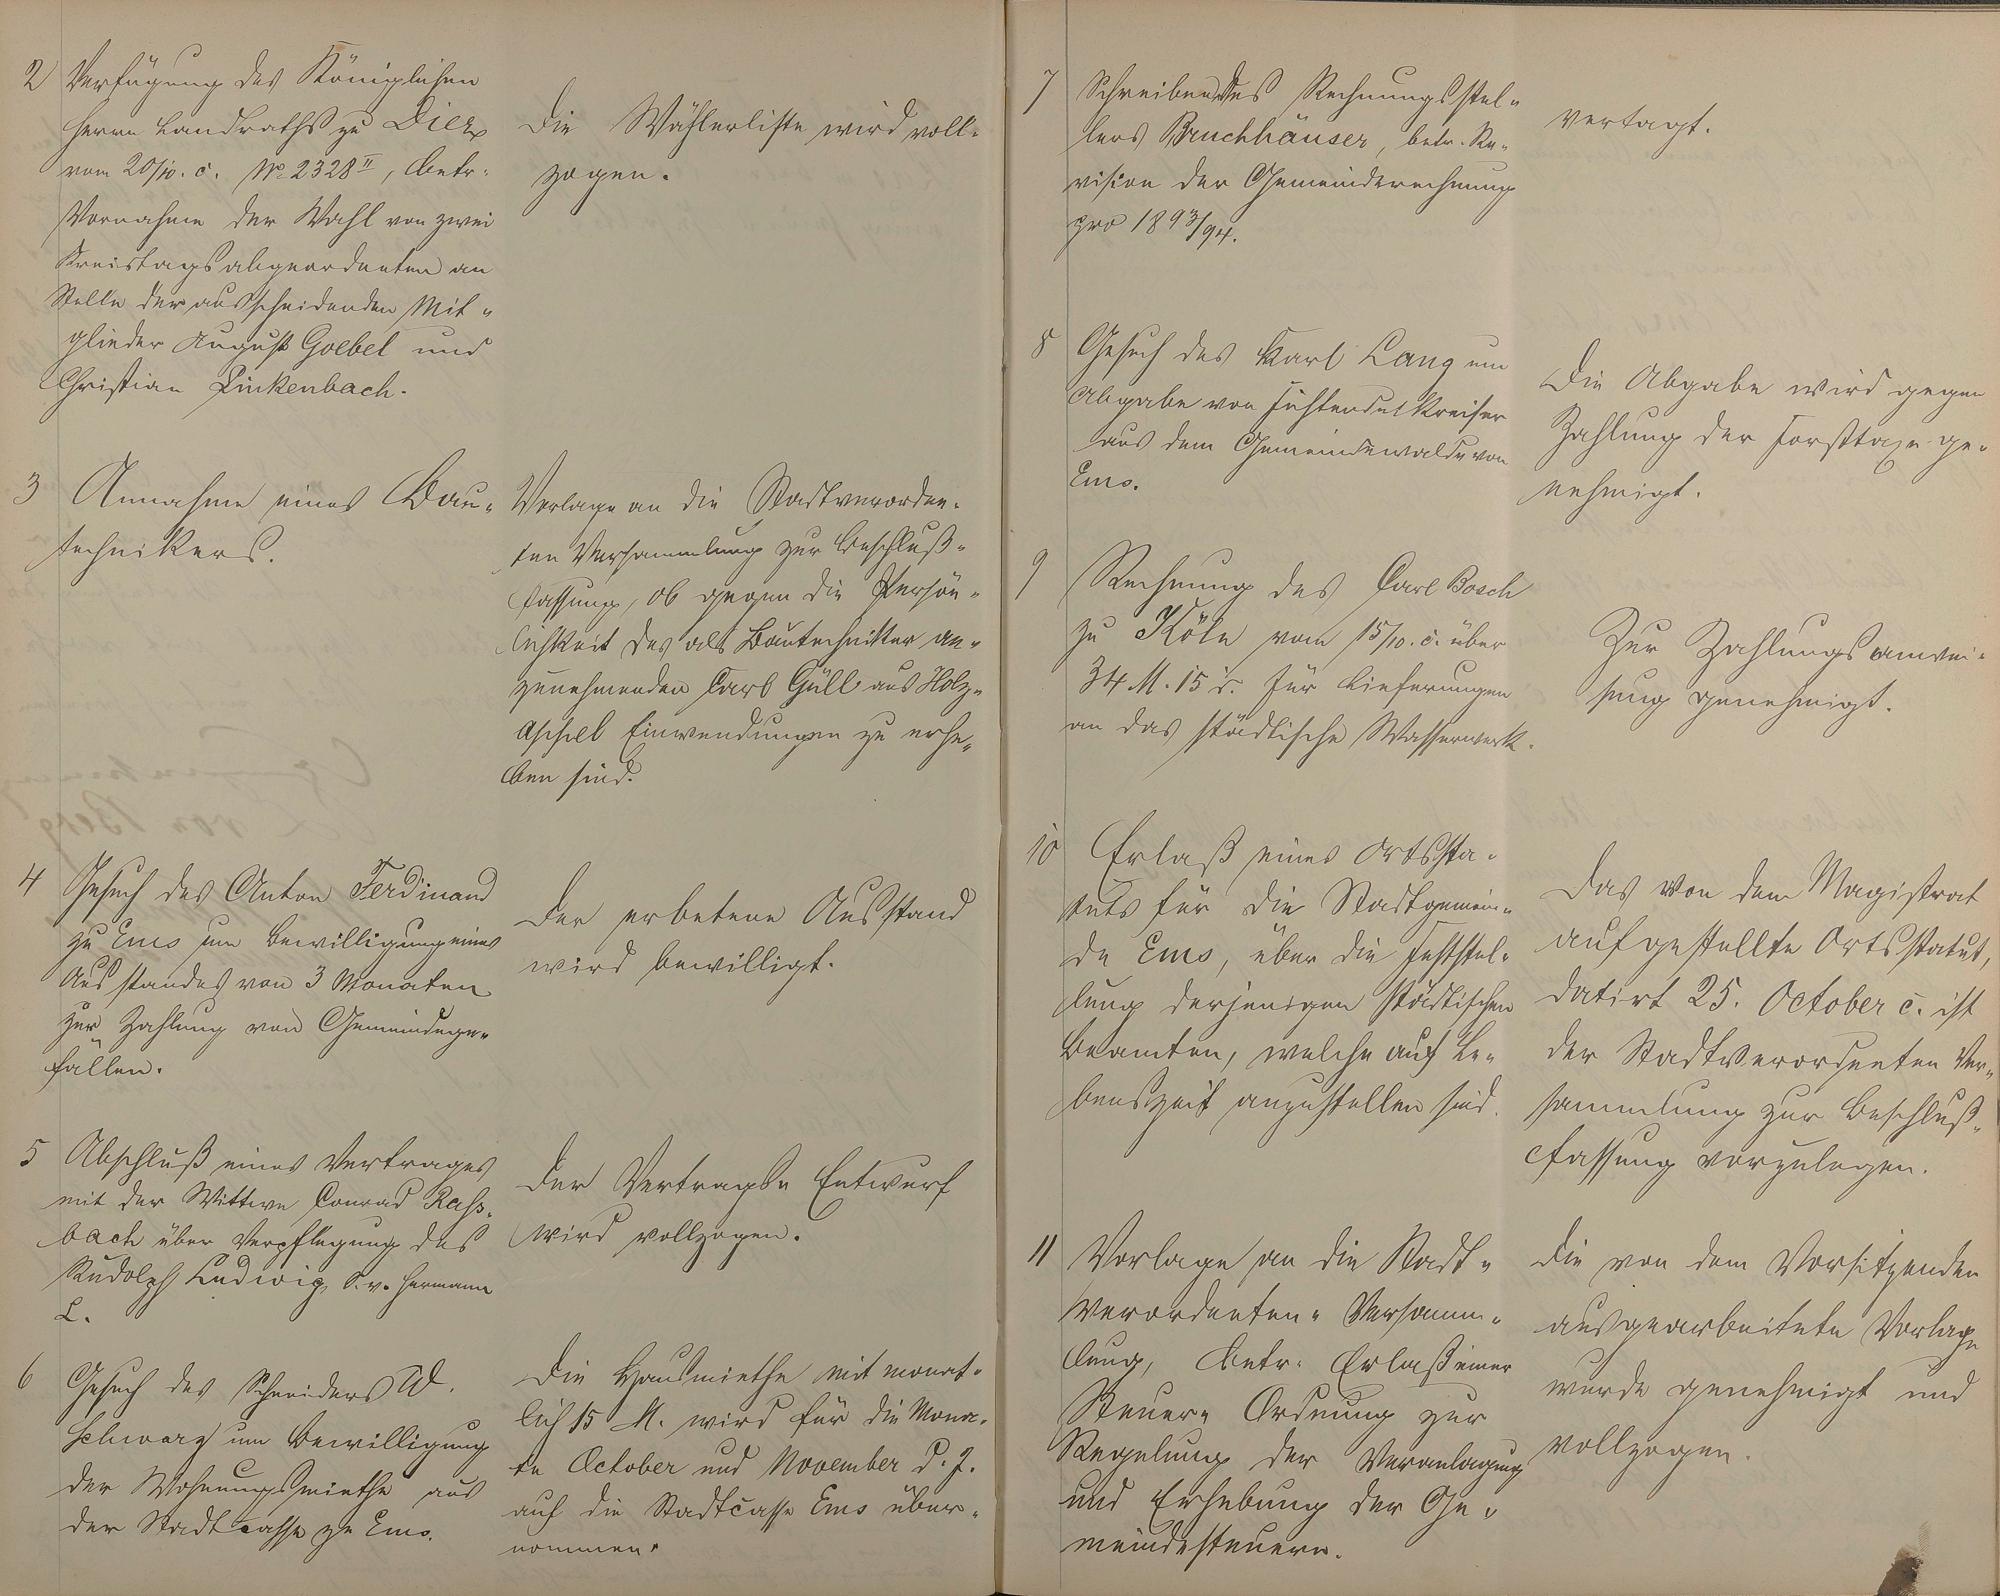 2 Verfügung des Königlichen
Herrn Landraths zu Diez
vom 20/10. c. No 2328 II, betr.
Vornahme der Wahl von zwei
Kreistagsabgeordneten an
Stelle der ausscheidenden Mit-
glieder August Goebel und
Christian Linkenbach.
Die Wählerliste wird voll-
zogen.
3 Annahme eines Bau-
technikers.
Vorlage an die Stadtverordne-
ten Versammlung zur Beschluß-
fassung, ob gegen die Persön-
lichkeit des als Bautechniker an-
zunehmenden Carl Güll aus Holz-
Einwendungen zu erhe-
ben sind.
4 Gesuch des Anton Ferdinand
zu Ems um Bewilligung eines
Ausstandes von 3 Monaten
zur Zahlung von Gemeindege-
fällen.
Der erbetene Ausstand
wird bewilligt.
5 Abschluß eines Vertrages
mit der Wittwe Conrad Rass-
bach über Verpflegung des
Rudolph Ludwig, S. v. Hermann
L.
Der Vertrags Entwurf
wird vollzogen.
6 Gesuch des Schneiders W.
Schwarz um Bewilligung
der Wohnungsmiethe aus
der Stadtcasse zu Ems.
Die Hausmiethe mit monat-
lich 15 M. wird für die Mona-
te October und November d. J.
auf die Stadtcasse Ems über-
nommen.
7 Schreiben des Rechnungsstel-
lers Bruchhäuser, betr. Re-
vision der Gemeinderechnung
pro 1893/94.
vertagt.
8 Gesuch des Karl Lang um
Abgabe von Fichten
aus dem Gemeindewalde von
Ems.
Die Abgabe wird gegen
Zahlung der Forsttaxe ge-
nehmigt.
9 Rechnung des Carl Bosch
zu Köln vom 15/10. c. über
34 M. 15 für Lieferungen
an das städtische Wasserwerk.
Zur Zahlungsanwei-
sung genehmigt.
10 Erlaß eines Ortssta-
tuts für die Stadtgemein-
de Ems, über die Feststel-
lung derjenigen städtischen
Beamten, welche auf Le-
benszeit anzustellen sind.
Das von dem Magistrat
aufgestellte Ortsstatut,
datirt 25. October c. ist
der Stadtverordneten Ver-
sammlung zur Beschluß-
fassung vorzulegen.
11 Vorlage an die Stadt-
verordneten-Versamm-
lung, betr. Erlaß einer
Steuer-Ordnung zur
Regelung der Veranlagung
und Erhebung der Ge-
meindesteuern.
Die von dem Vorsitzenden
ausgearbeitete Vorlage
wurde genehmigt und
vollzogen.